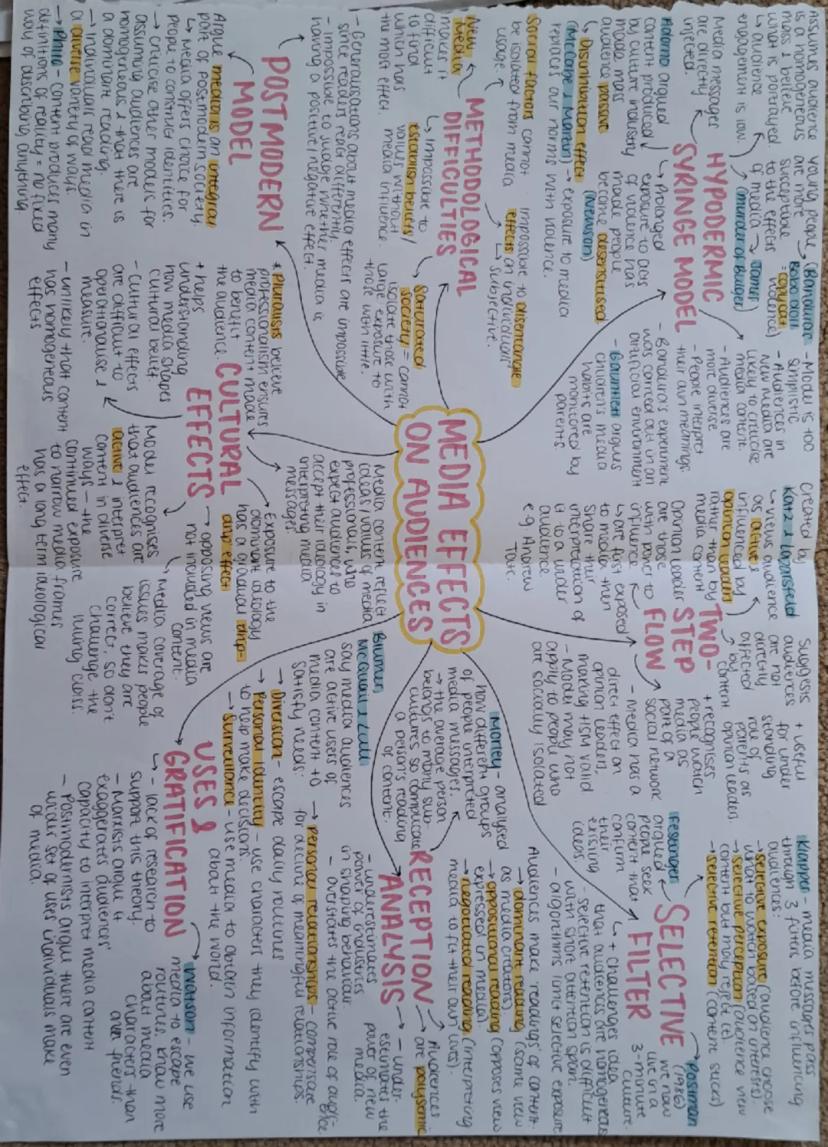 MEDIA EFFECTS
ON AUDIENCES
HYPODERMIC
SYRINGE MODEL
Assumes audience
is a homogeneous
mass & believe
what is portrayed
↳ audience
engagement is low.
Media messages
are directly
injected.
Adorno argued
content produced
by culture industry
made mass
audience passive
↳ Disinhibition effect
(McCabe & Martin) → exposure to media
replaces our norms with violence.
young people
are more
susceptible
to the effects
of media →
(Bandura
Bobo doll
= copycat
violence)
James
(Murder of Bulger)
↳ Prolonged
exposure to acts
of violence has
made people
become desensitised
(Newson)
- Model is too
simplistic
- Audiences in
New media are
likely to criticise
media content.
- Audiences are
more diverse
- People interpret
their own meanings
- Bandura's experiment
was carried out in an
artificial environment
children's media
habits are
monitored by
parents.
TWO-
STEP
FLOW
Created by
Katz & Lazarsfeld
↳ views audience
as active &
influenced by
opinion leaders
rather than by
media content
Opinion leaders
are those
with power to
influence
↳ are first exposed
to media then
share their
interpretation of
it to a wider
audience
e.g Andrew
Tate.
Suggests
audiences
are not
directly
affected
by
content
+ useful
for under
standing
role of
parents as
opinion leaders
+ recognises
people watch
media as
part of a
social network
- Media has a
direct effect on
opinion leaders,
making HSM valid
- Model may not
apply to people who
are socially isolated
SELECTIVE
FILTER
Klapper - media messages pass
through 3 filters before influencing
audiences:
→ selective exposure (audience choose
what to watch based on interests).
→ selective perception (audience view
content but may reject it)
→ selective retention (content sticks)
Festinger
argued
people seek
content that
confirm
their
existing
ideas.
Postman
(1986)
we now
live in a
3-minute
culture.
↳ + challenges idea
that audiences are homogeneous
- selective retention is difficult
with short attention span.
- algorithms limit selective exposure
RECEPTION
ANALYSIS
Morley - analysed
how different groups
of people interpreted
media messages.
→ the average person
belongs to many sub-
cultures so complicate
a person's reading
of content.
Audiences make readings of content.
→ dominant reading (same view
as media creators).
→ oppositional reading (opposes view
expressed in media).
→ negotiated reading (interpreting
media to fit their own lives).
Audiences
are polysemic
- underestimates
power of industries
in shaping behaviour
- overstates the active role of audience
→ - under
estimates the
power of new
media.
USES &
GRATIFICATION
Blumler,
McQuail &
say media audiences
are active uses of
media content to
satisfy needs:
→ Diversion - escape daily routines
→ Personal identity - use characters they identify with
to help make decisions.
→ Surveillance - use media to obtain information
about the world.
→ personal relationships - compensate
for decline of meaningful relationships.
Watson - we use
media to escape
routines, know more
about media
characters than
our friends.
↳ - lack of research to
support this theory.
- Marxists argue it
exaggerates audiences'
capacity to interpret media content
- Postmodernists argue there are even
wider set of uses individuals make
of media.
CULTURAL
EFFECTS
Media content reflect
ideas/values of media
professionals, who
expect audiences to
accept their ideology in
interpreting media
messages
Exposure to the
dominant ideology
has a gradual drip-
drip effect
→ opposing views are
not included in media
content.
↳ Media coverage of
issues makes people
believe they are
correct, so don't
challenge the
ruling class.
Model recognises
that audiences are
active & interpret
content in diverse
ways - the
continued exposure
to narrow media frames
has a long term ideological
effect.
+ Pluralists believe
professionalism ensures
media content made
to benefit
the audience.
+ helps
understanding
how media shapes
cultural belief.
- Cultural effects
are difficult to
operationalise &
measure.
- unlikely that content
has homogeneous
effects
METHODOLOGICAL
DIFFICULTIES
Social factors cannot
be isolated from media
usage.
Impossible to disentangle
effects on individual
↳ subjective.
New
media
makes it
difficult
to find
which has
the most effect.
↳ Impossible to
establish beliefs/
values without
media influence.
↳ Saturated
society = cannot
isolate those with
large exposure to
those with little.
- Generalisations about media effects are impossible
since readers react differently
- impossible to judge whether media is
having a positive/negative effect.
POSTMODERN
MODEL
Argue media is an integral
part of postmodern society.
↳ Media offers choice for
people to construct identities.
→ criticise other models for
assuming audiences are
homogeneous & that there is
a dominant reading.
→ Individuals read media in
a diverse variety of ways.
→ content produces many
definitions of reality = no fixed
way of describing anything